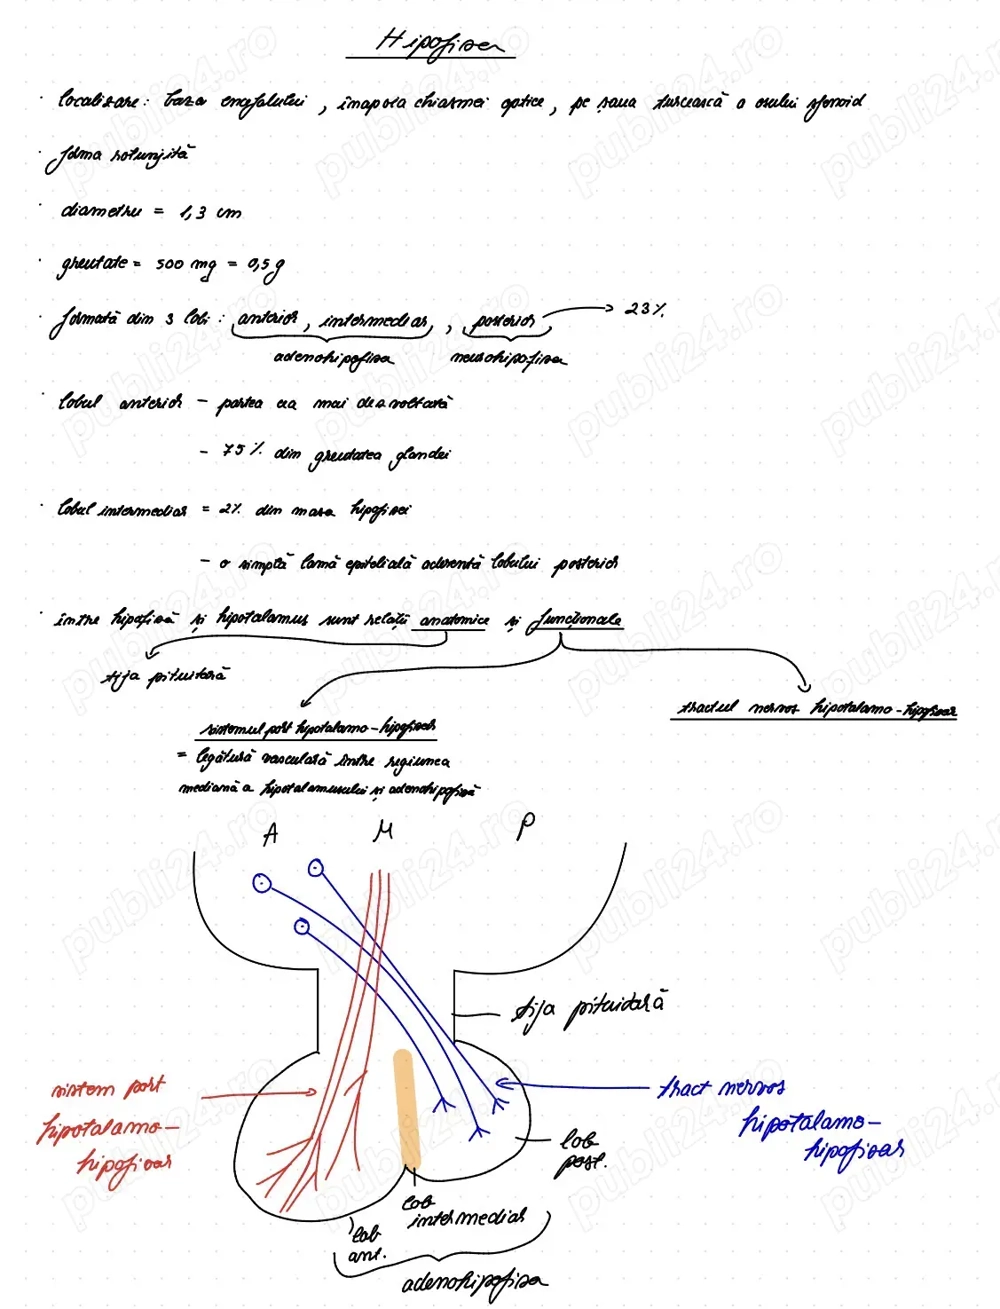 Hipofiza
· localizare: baza encefalului, înapoia chiasmei optice, pe șaua turcească a osului sfenoid
· forma rotunjită
· diametru = 1,3 cm
· greutate = 500 mg = 0,5g
· formată din 3 lobi: anterior, intermediar, posterior → 23%
adenohipofiza neurohipofiza
· lobul anterior - partea cea mai dezvoltată
- 75% din greutatea glandei
· lobul intermediar = 2% din masa hipofizei
- o simplă lamă epitelială aderentă lobului posterior
· între hipofiză și hipotalamus sunt relații anatomice și funcționale
tija pituitară
tractul nervos hipotalamo-hipofizar
sistemul port hipotalamo-hipofizar
= legătură vasculară între regiunea
mediană a hipotalamusului și adenohipofiză
A M P
tija pituitară
sistem port
hipotalamo-
hipofizar
tract nervos
hipotalamo-
hipofizar
lob
post.
lob
intermediar
lob
ant.
adenohipofiza
publi24.ro